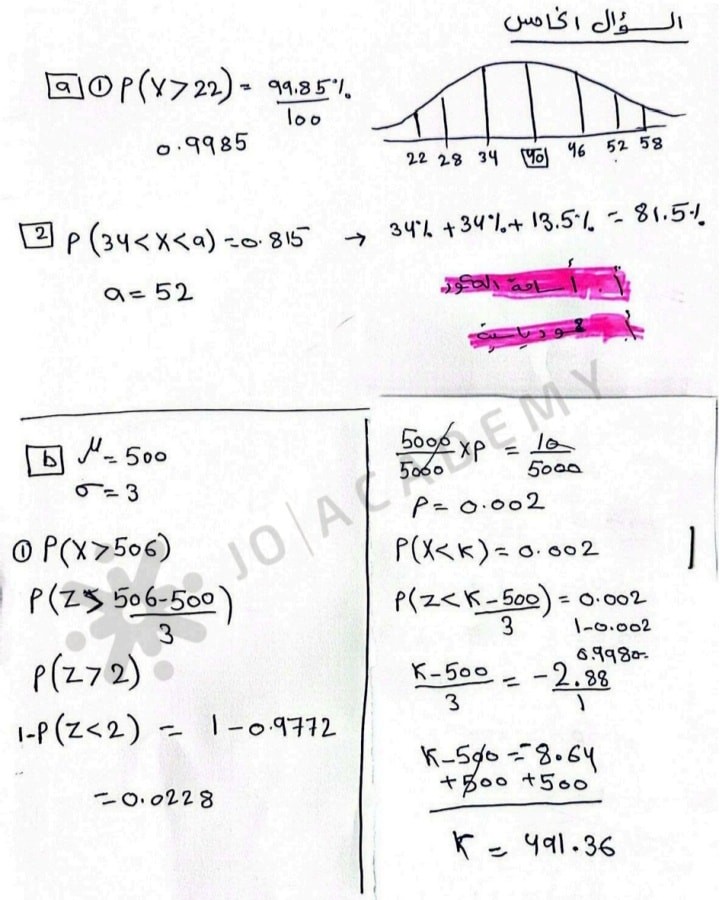 السؤال الخامس
a ① P(X>22) = 99.85% / 100
0.9985
22 28 34 40 46 52 58
2 P(34<X<a)=0.815 → 34% + 34% + 13.5% = 81.5%
a = 52
أ. أسامة العكور
b μ = 500
σ = 3
① P(X>506)
P(Z> 506-500 / 3)
P(Z>2)
1-P(Z<2) = 1-0.9772
=0.0228
5000/5000 xP = 10/5000
P= 0.002
P(X<K)=0.002
P(Z<K-500 / 3)=0.002
1-0.002
0.9980
K-500 / 3 = -2.88 / 1
K-500 =-8.64
+500 +500
K = 491.36
JO|ACADEMY